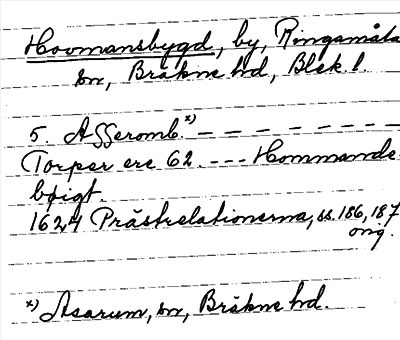 Hovmansbygd, by, Ringamåla
sn, Bräkne hd, Blek. l.
5 Asseromb.x) – – – – – – – –
Torper ere 62. --- Hommande-
bøigt.
1624 Prästrelationerna, ss. 186, 187
orig.
x) Asarum, sn, Bräkne hd.